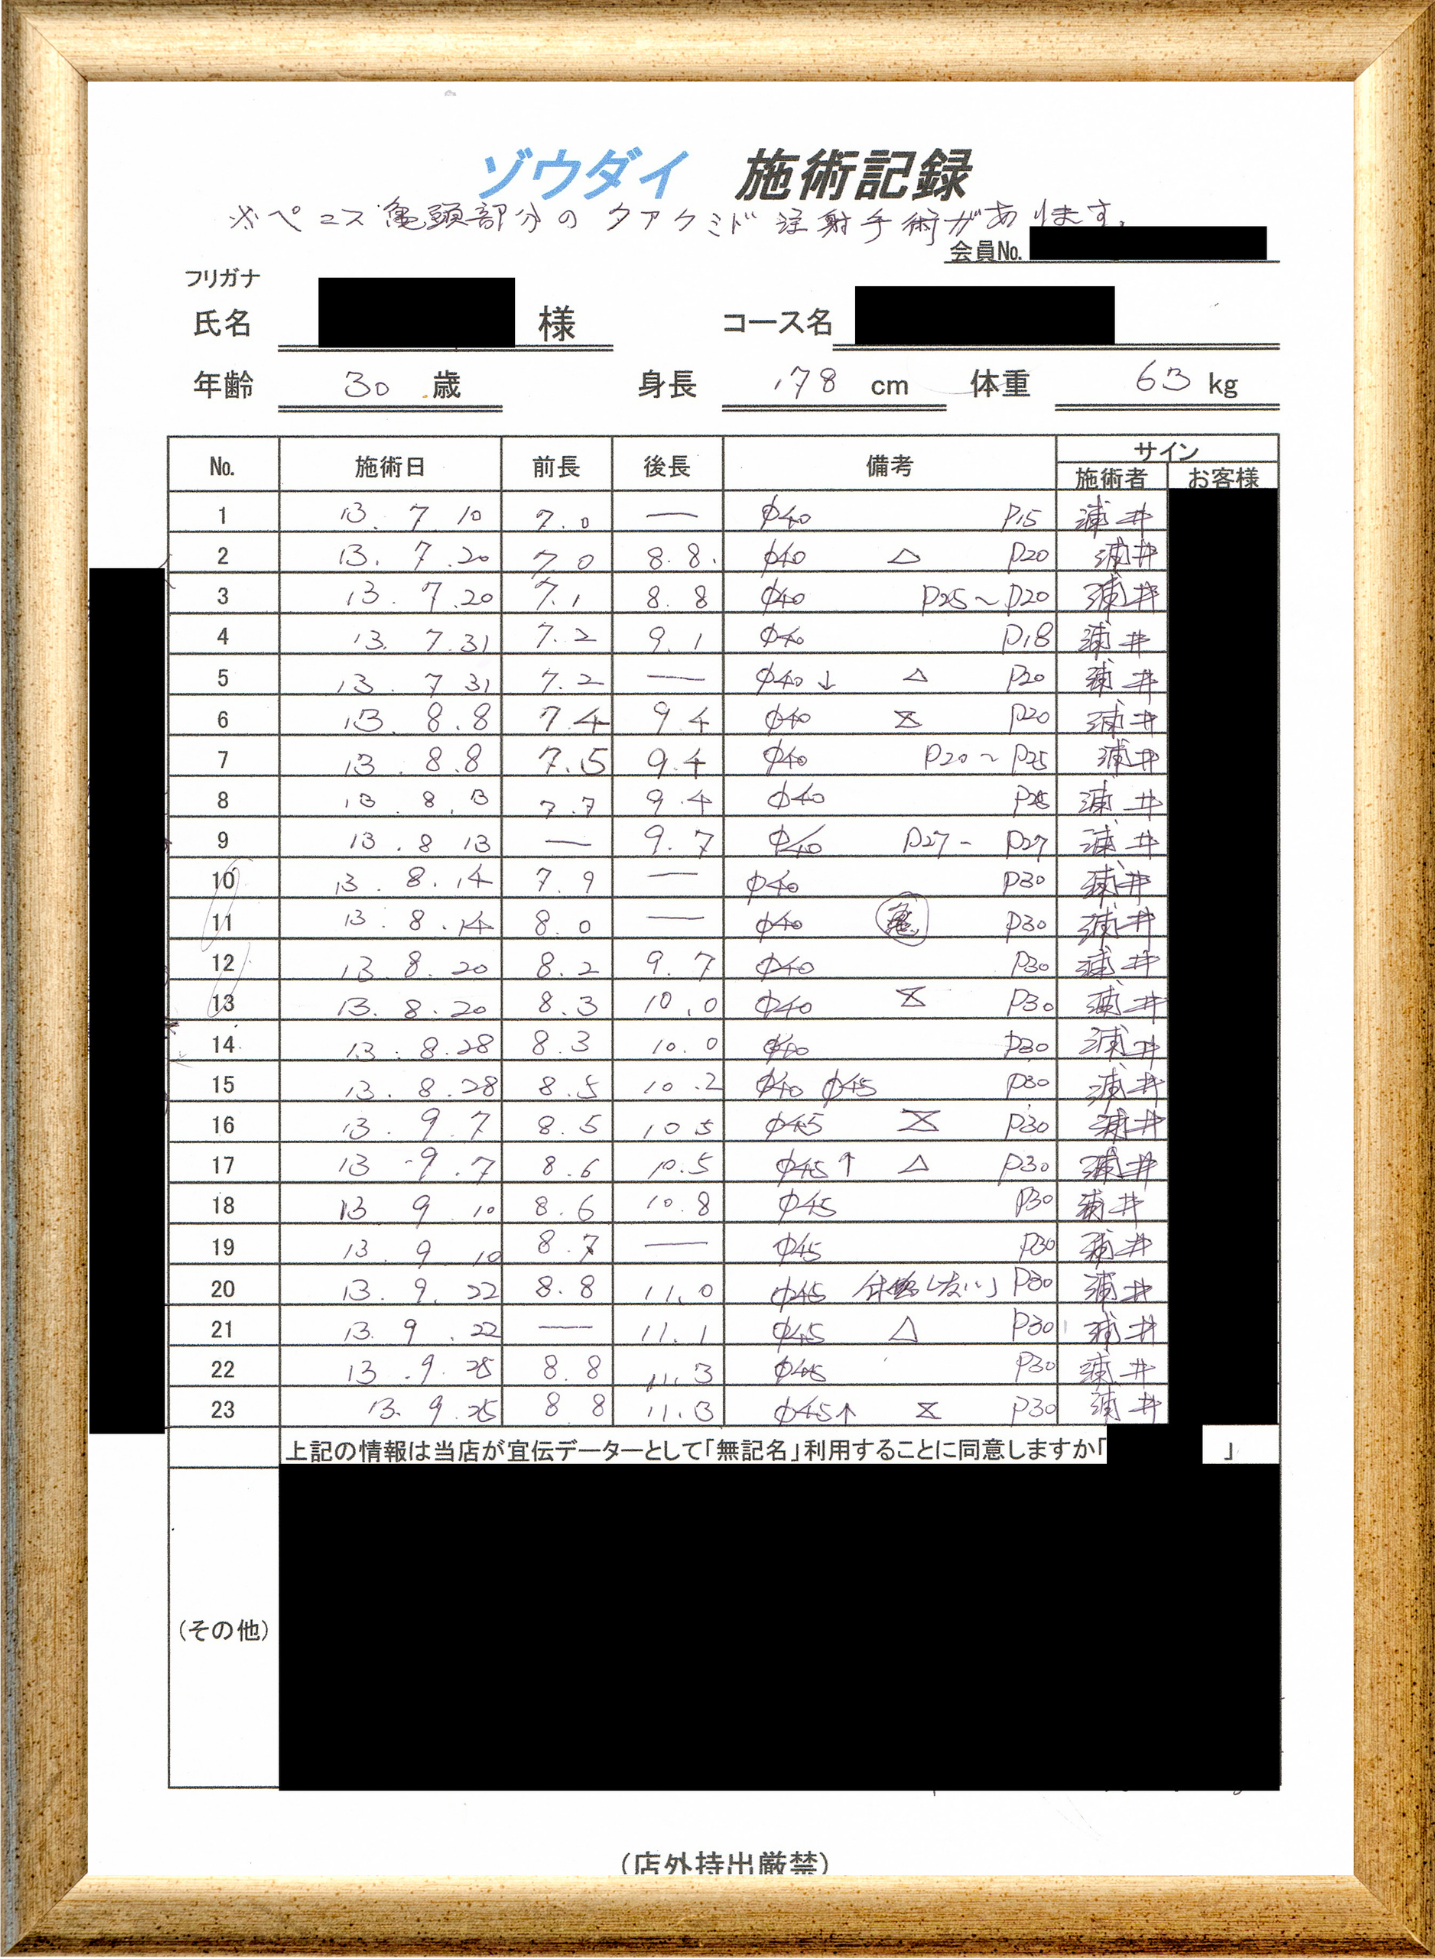 ゾウダイ 施術記録
亀頭部分の 注射手術があります。
会員No.
フリガナ
氏名 様 コース名
年齢 30 歳 身長 178 cm 体重 63 kg
No. 施術日 前長 後長 備考 サイン
施術者 お客様
1 13. 7 10 7.0 — φ40 P15 浦井
2 13. 7.20 7.0 8.8. φ40 △ P20 浦井
3 13. 7.20 7.1 8.8 φ40 P25〜P20 浦井
4 13. 7.31 7.2 9.1 φ40 P18 浦井
5 13. 7 31 7.2 — φ40↓ △ P20 浦井
6 13. 8.8 7.4 9.4 φ40 P20 浦井
7 13. 8.8 7.5 9.4 φ40 P20〜P25 浦井
8 13. 8.13 7.7 9.4 φ40 P25 浦井
9 13. 8 13 — 9.7 φ40 P27- P27 浦井
10 13. 8.14 7.9 — φ40 P30 浦井
11 13. 8.14 8.0 — φ40 亀 P30 浦井
12 13 8.20 8.2 9.7 φ40 P30 浦井
13 13. 8.20 8.3 10.0 φ40 P30 浦井
14 13. 8.28 8.3 10.0 φ40 P30 浦井
15 13. 8.28 8.5 10.2 φ40 φ45 P30 浦井
16 13. 9 7 8.5 10.5 φ45 P30 浦井
17 13 9.7 8.6 10.5 φ45↑ △ P30 浦井
18 13 9 10 8.6 10.8 φ45 P30 浦井
19 13. 9 10 8.7 — φ45 P30 浦井
20 13. 9. 22 8.8 11.0 φ45 しない」 P30 浦井
21 13. 9.22 — 11.1 φ45 △ P30 浦井
22 13.9.25 8.8 11.3 φ45 P30 浦井
23 13.9.25 8 8 11.3 φ45↑ P30 浦井
上記の情報は当店が宣伝データーとして「無記名」利用することに同意しますか「 」
(その他)
(店外持出厳禁)